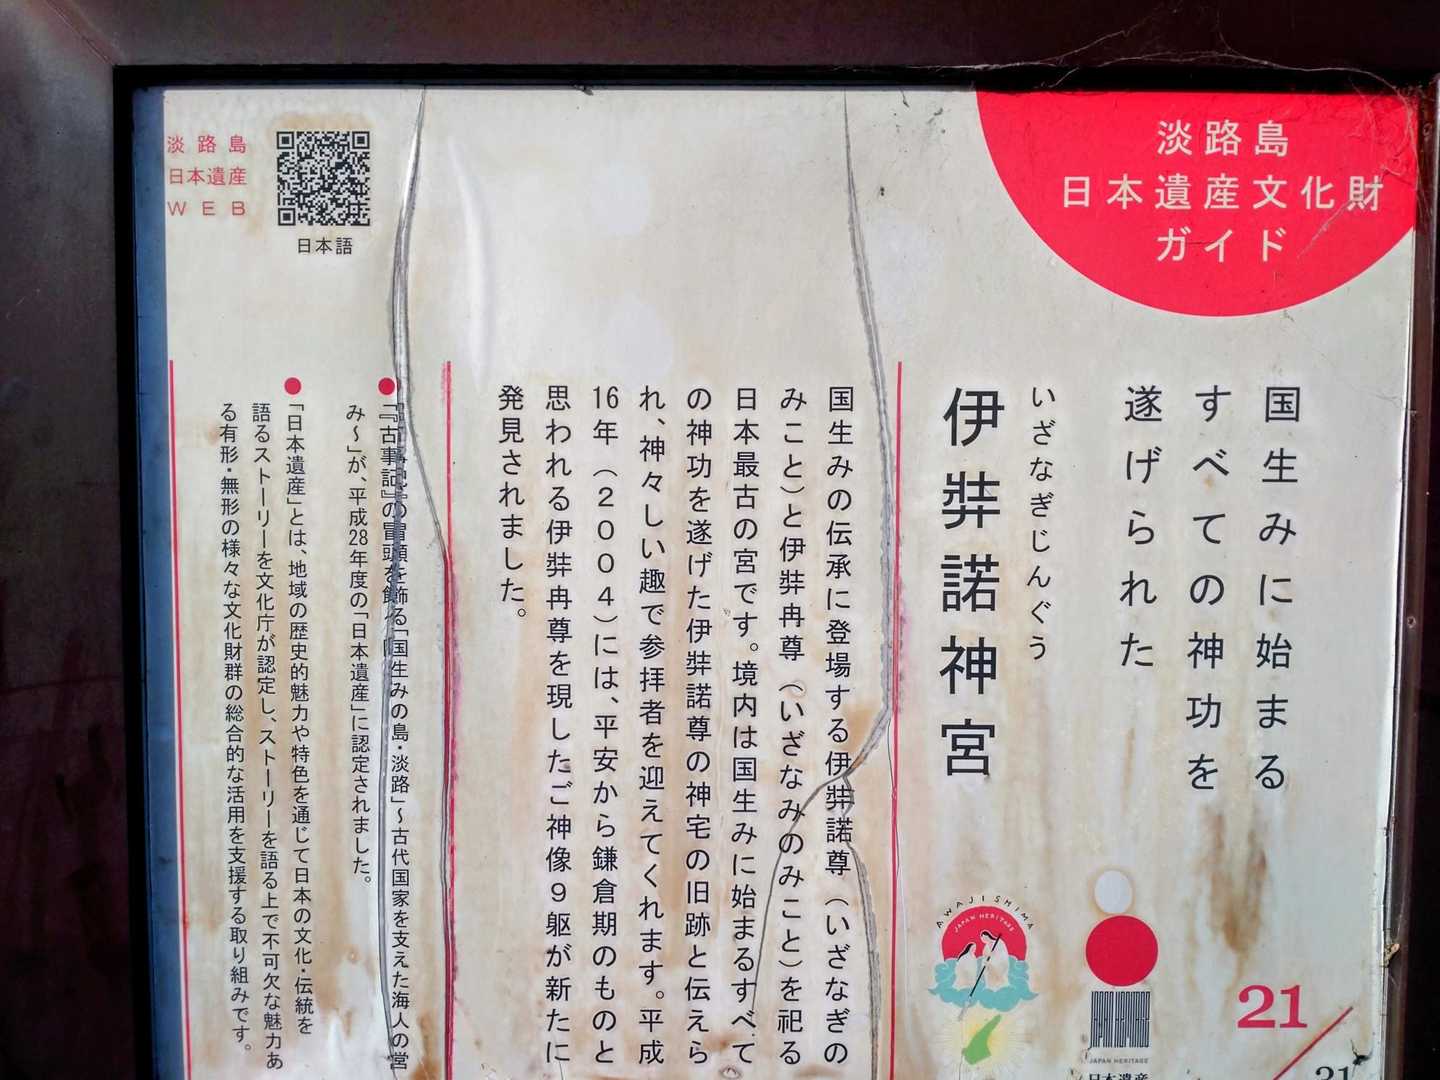 淡路島
日本遺産文化財
ガイド
国生みに始まる
すべての神功を
遂げられた
いざなぎじんぐう
伊弉諾神宮
国生みの伝承に登場する伊弉諾尊（いざなぎの
みこと）と伊弉冉尊（いざなみのみこと）を祀る
日本最古の宮です。境内は国生みに始まるすべて
の神功を遂げた伊弉諾尊の神宅の旧跡と伝えら
れ、神々しい趣で参拝者を迎えてくれます。平成
16年（２００４）には、平安から鎌倉期のものと
思われる伊弉冉尊を現したご神像９躯が新たに
発見されました。
AWAJISHIMA
JAPAN HERITAGE
JAPAN HERITAGE
日本遺産
21
31
●『古事記』の冒頭を飾る「国生みの島・淡路」～古代国家を支えた海人の営
み～」が、平成28年度の「日本遺産」に認定されました。
●「日本遺産」とは、地域の歴史的魅力や特色を通じて日本の文化・伝統を
語るストーリーを文化庁が認定し、ストーリーを語る上で不可欠な魅力あ
る有形・無形の様々な文化財群の総合的な活用を支援する取り組みです。
淡路島
日本遺産
ＷＥＢ
日本語